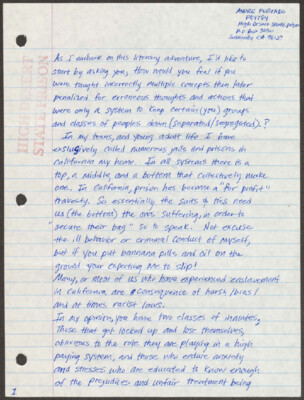 ANDRE FURTADO
High Desert State prison
P.O Box 3030
Susanville CA 96127
HIGH DESERT
STATE PRISON
As I embark on this literary adventure, I'd like to
start by asking you, How would you feel if you
were taught incorrectly multiple concepts then later
penalized for erroneous thoughts and actions that
were only a system to keep certain (you) groups
and classes of peoples down (separated/segregated)?
In my teens, and young adult life I have
exslusively called numerous jails and prisons in
california my home. In all systems there is a
top, a middle, and a bottom that collectively make
one. In California, prison has become a "for profit"
travesty. So essentially the suits @ this need
us (the bottom) the ones suffering, in order to
"secure their bag" so to speak. Not excuse
the ill behavior or criminal conduct of myself,
but if you put bannana pills and oil on the
ground your expecting me to slip!
Many, or most of us who have experienced enslavement
in California are a consequence of harsh/bias/
and at times racist laws.
In my opinion, you have two classes of inmates,
Those that get locked up and lose themselves,
oblivious to the role they are playing in a high
paying system, and those who endure anxiety
and stresses who are educated to know enough
of the prejudices and unfair treatment being
1